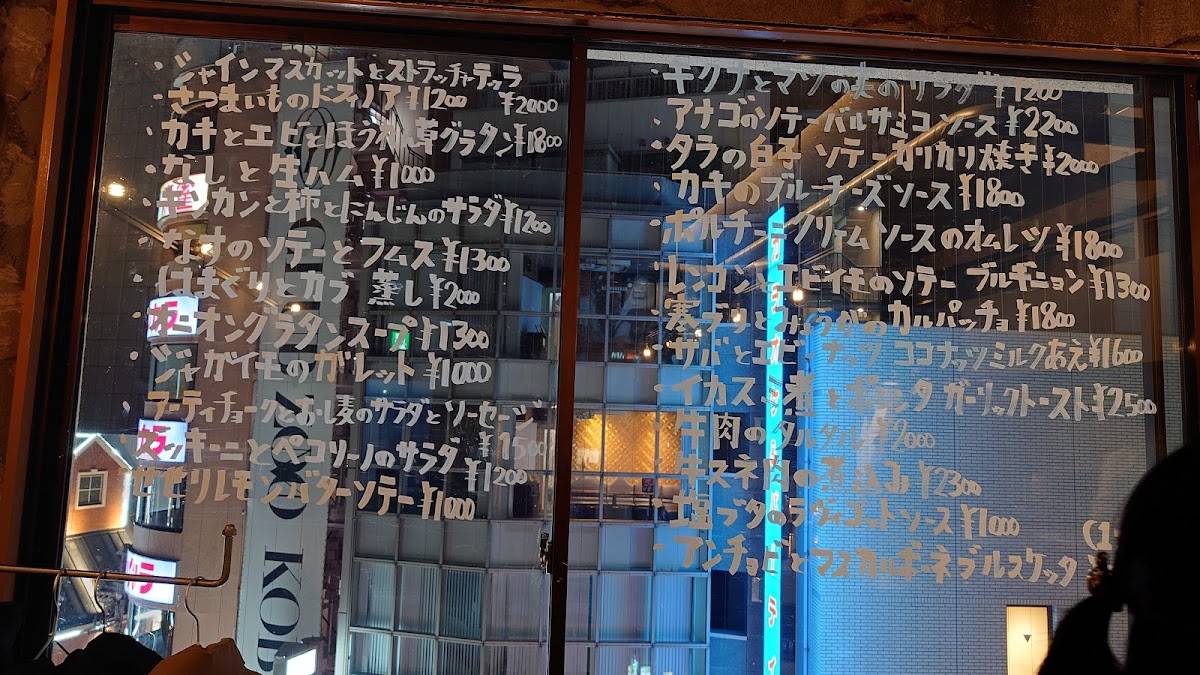 ・シャインマスカットとストラッチャテッラ
¥2000
・さつまいものドフィノア ¥1200
・カキとエビとほうれん草グラタン ¥1800
・なしと生ハム ¥1000
・キンカンと柿とにんじんのサラダ ¥1200
・なすのソテーとフムス ¥1300
・はまぐりとカブ 蒸し ¥2000
・オニオングラタンスープ ¥1300
・ジャガイモのガレット ¥1000
・アーティチョークとおし麦のサラダとソーセージ
¥1500
・ズッキーニとペコリーノのサラダ ¥1200
レモンバターソテー ¥1000
・キクナとマツの実のサラダ ¥1200
・アナゴのソテーバルサミコソース ¥2200
・タラの白子 ソテーカリカリ焼き ¥2000
・カキのブルーチーズソース ¥1800
・ポルチーニクリームソースのオムレツ ¥1800
・レンコンとエビイモのソテー ブルギニョン ¥1300
・寒 カルパッチョ ¥1800
・サバとエビ ナッツ ココナッツミルクあえ ¥1600
・イカスミ煮とポレンタ ガーリックトースト ¥2500
・牛肉のタルタル ¥2000
・牛スネ肉の煮込み ¥2300
・塩ブタのラヴィゴットソース ¥1000
・アンチョビとマスカルポーネブルスケッタ
(1
KOD